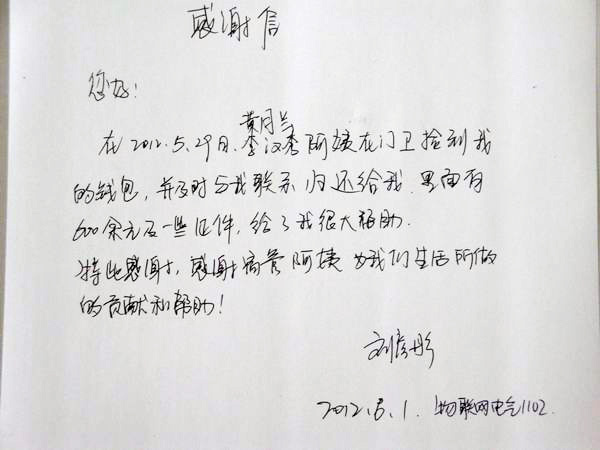 感谢信
您好!
黄月兰
在2012.5.29日.李汉秀阿姨在门卫捡到我
的钱包,并及时与我联系归还给我.里面有
600余元及一些证件,给了我很大帮助.
特此感谢,感谢宿管阿姨为我们生活所做
的贡献和帮助!
刘彦彤
2012.6.1. 物联网电气1102.